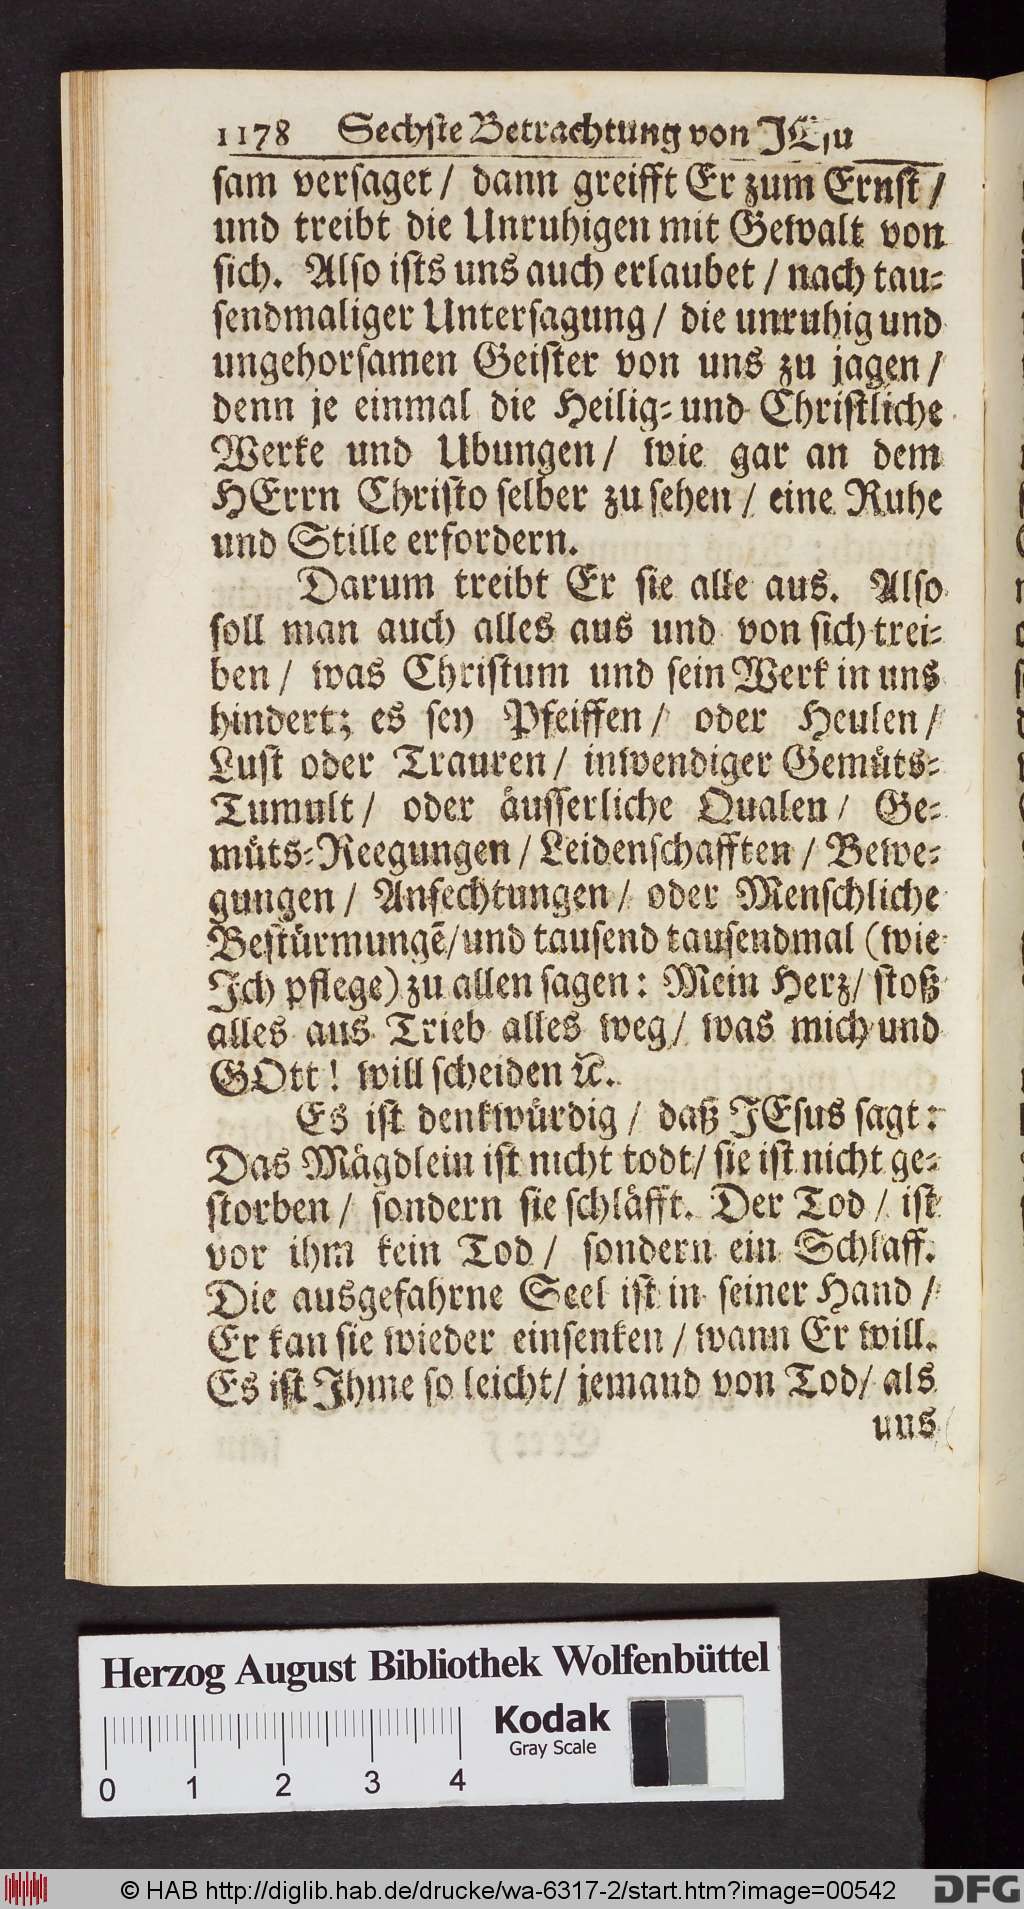 1178 Sechste Betrachtung von JEsu
sam versaget / dann greifft Er zum Ernst /
und treibt die Unruhigen mit Gewalt von
sich. Also ists uns auch erlaubet / nach tau-
sendmaliger Untersagung / die unruhig und
ungehorsamen Geister von uns zu jagen /
denn je einmal die Heilig- und Christliche
Werke und Ubungen / wie gar an dem
HErrn Christo selber zu sehen / eine Ruhe
und Stille erfordern.
Darum treibt Er sie alle aus. Also
soll man auch alles aus und von sich trei-
ben / was Christum und sein Werk in uns
hindert; es sey Pfeiffen / oder Heulen /
Lust oder Trauren / inwendiger Gemüts-
Tumult / oder äusserliche Qualen / Ge-
müts-Reegungen / Leidenschafften / Bewe-
gungen / Anfechtungen / oder Menschliche
Bestürmungē / und tausend tausendmal (wie
Ich pflege) zu allen sagen: Mein Herz / stoß
alles aus Trieb alles weg / was mich und
GOtt! will scheiden ꝛc.
Es ist denkwürdig / daß JEsus sagt:
Das Mägdlein ist nicht todt / sie ist nicht ge-
storben / sondern sie schläfft. Der Tod / ist
vor ihm kein Tod / sondern ein Schlaff.
Die ausgefahrne Seel ist in seiner Hand /
Er kan sie wieder einsenken / wann Er will.
Es ist Ihme so leicht / jemand von Tod / als
uns
Herzog August Bibliothek Wolfenbüttel
Kodak
Gray Scale
0 1 2 3 4
© HAB http://diglib.hab.de/drucke/wa-6317-2/start.htm?image=00542
DFG